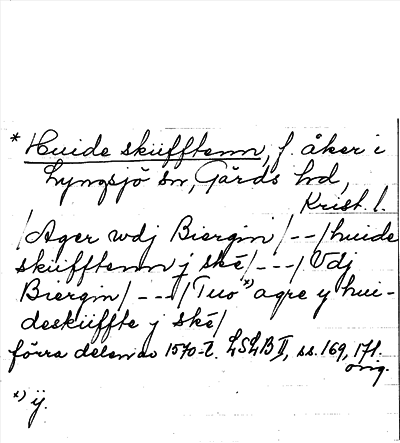 * Huide skiifftenn, f. åker i
Lyngsjö sn, Gärds hd,
Krist. l.
/Ager wdj Biergin/--/huide
skiifftenn j skě/---/Vdj
Biergin/---/Tuo *) agre y hui-
deskiiffte j skě/
förra delen av 1570-t. LSLB II, ss. 169, 171.
orig.
*) ÿ.